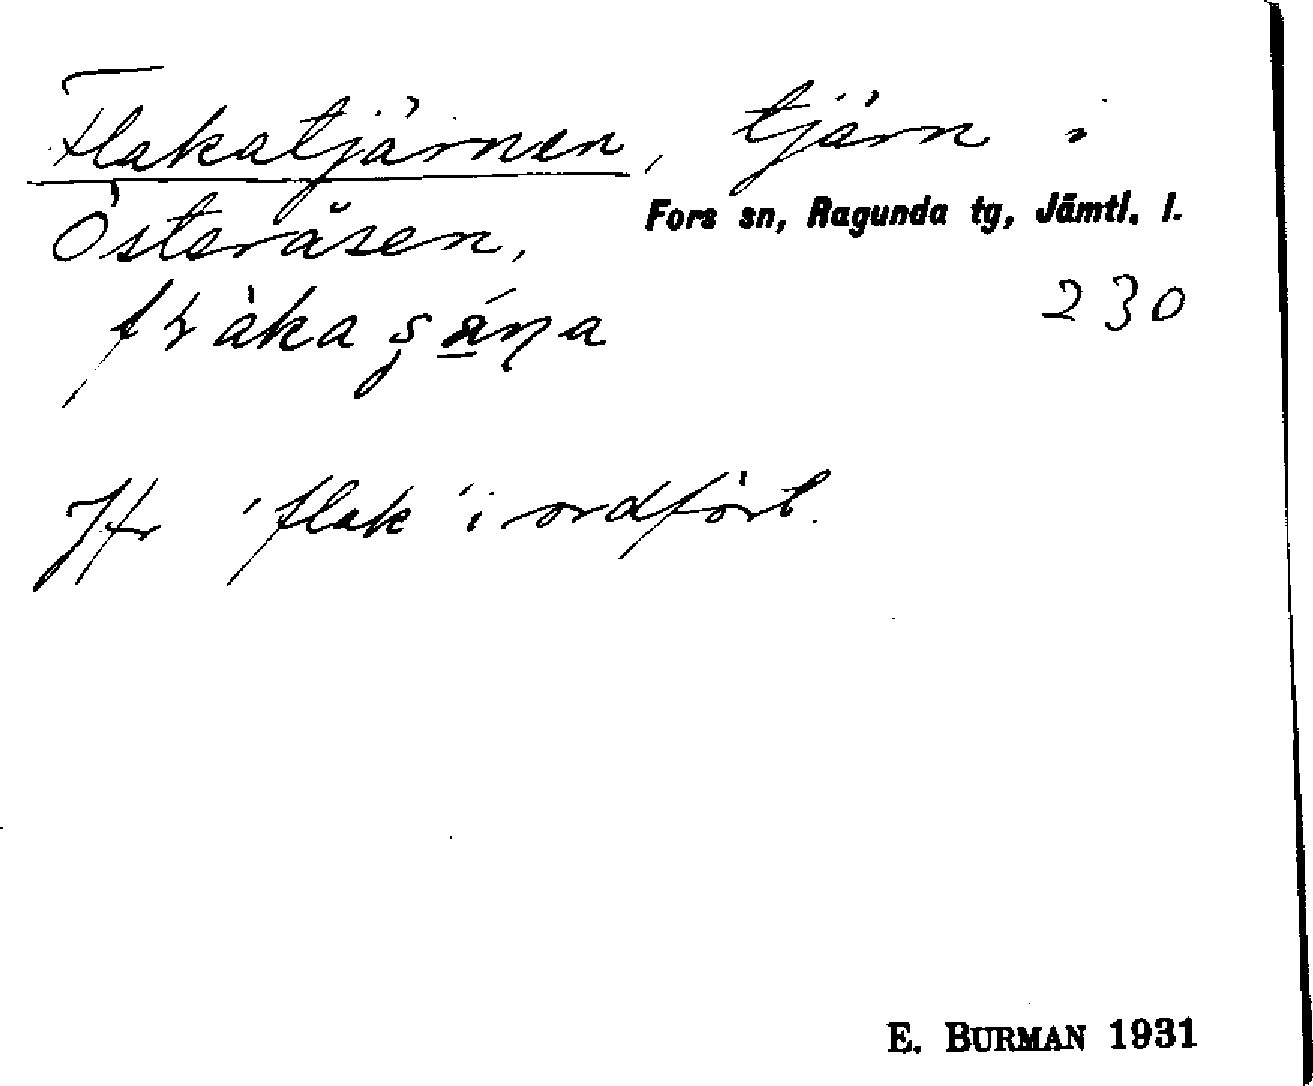 Flakatjärnen, tjärn i
Fors sn, Ragunda tg, Jämtl. l.
Österåsen,
230
Jfr 'flak' i ordförl.
E. BURMAN 1931